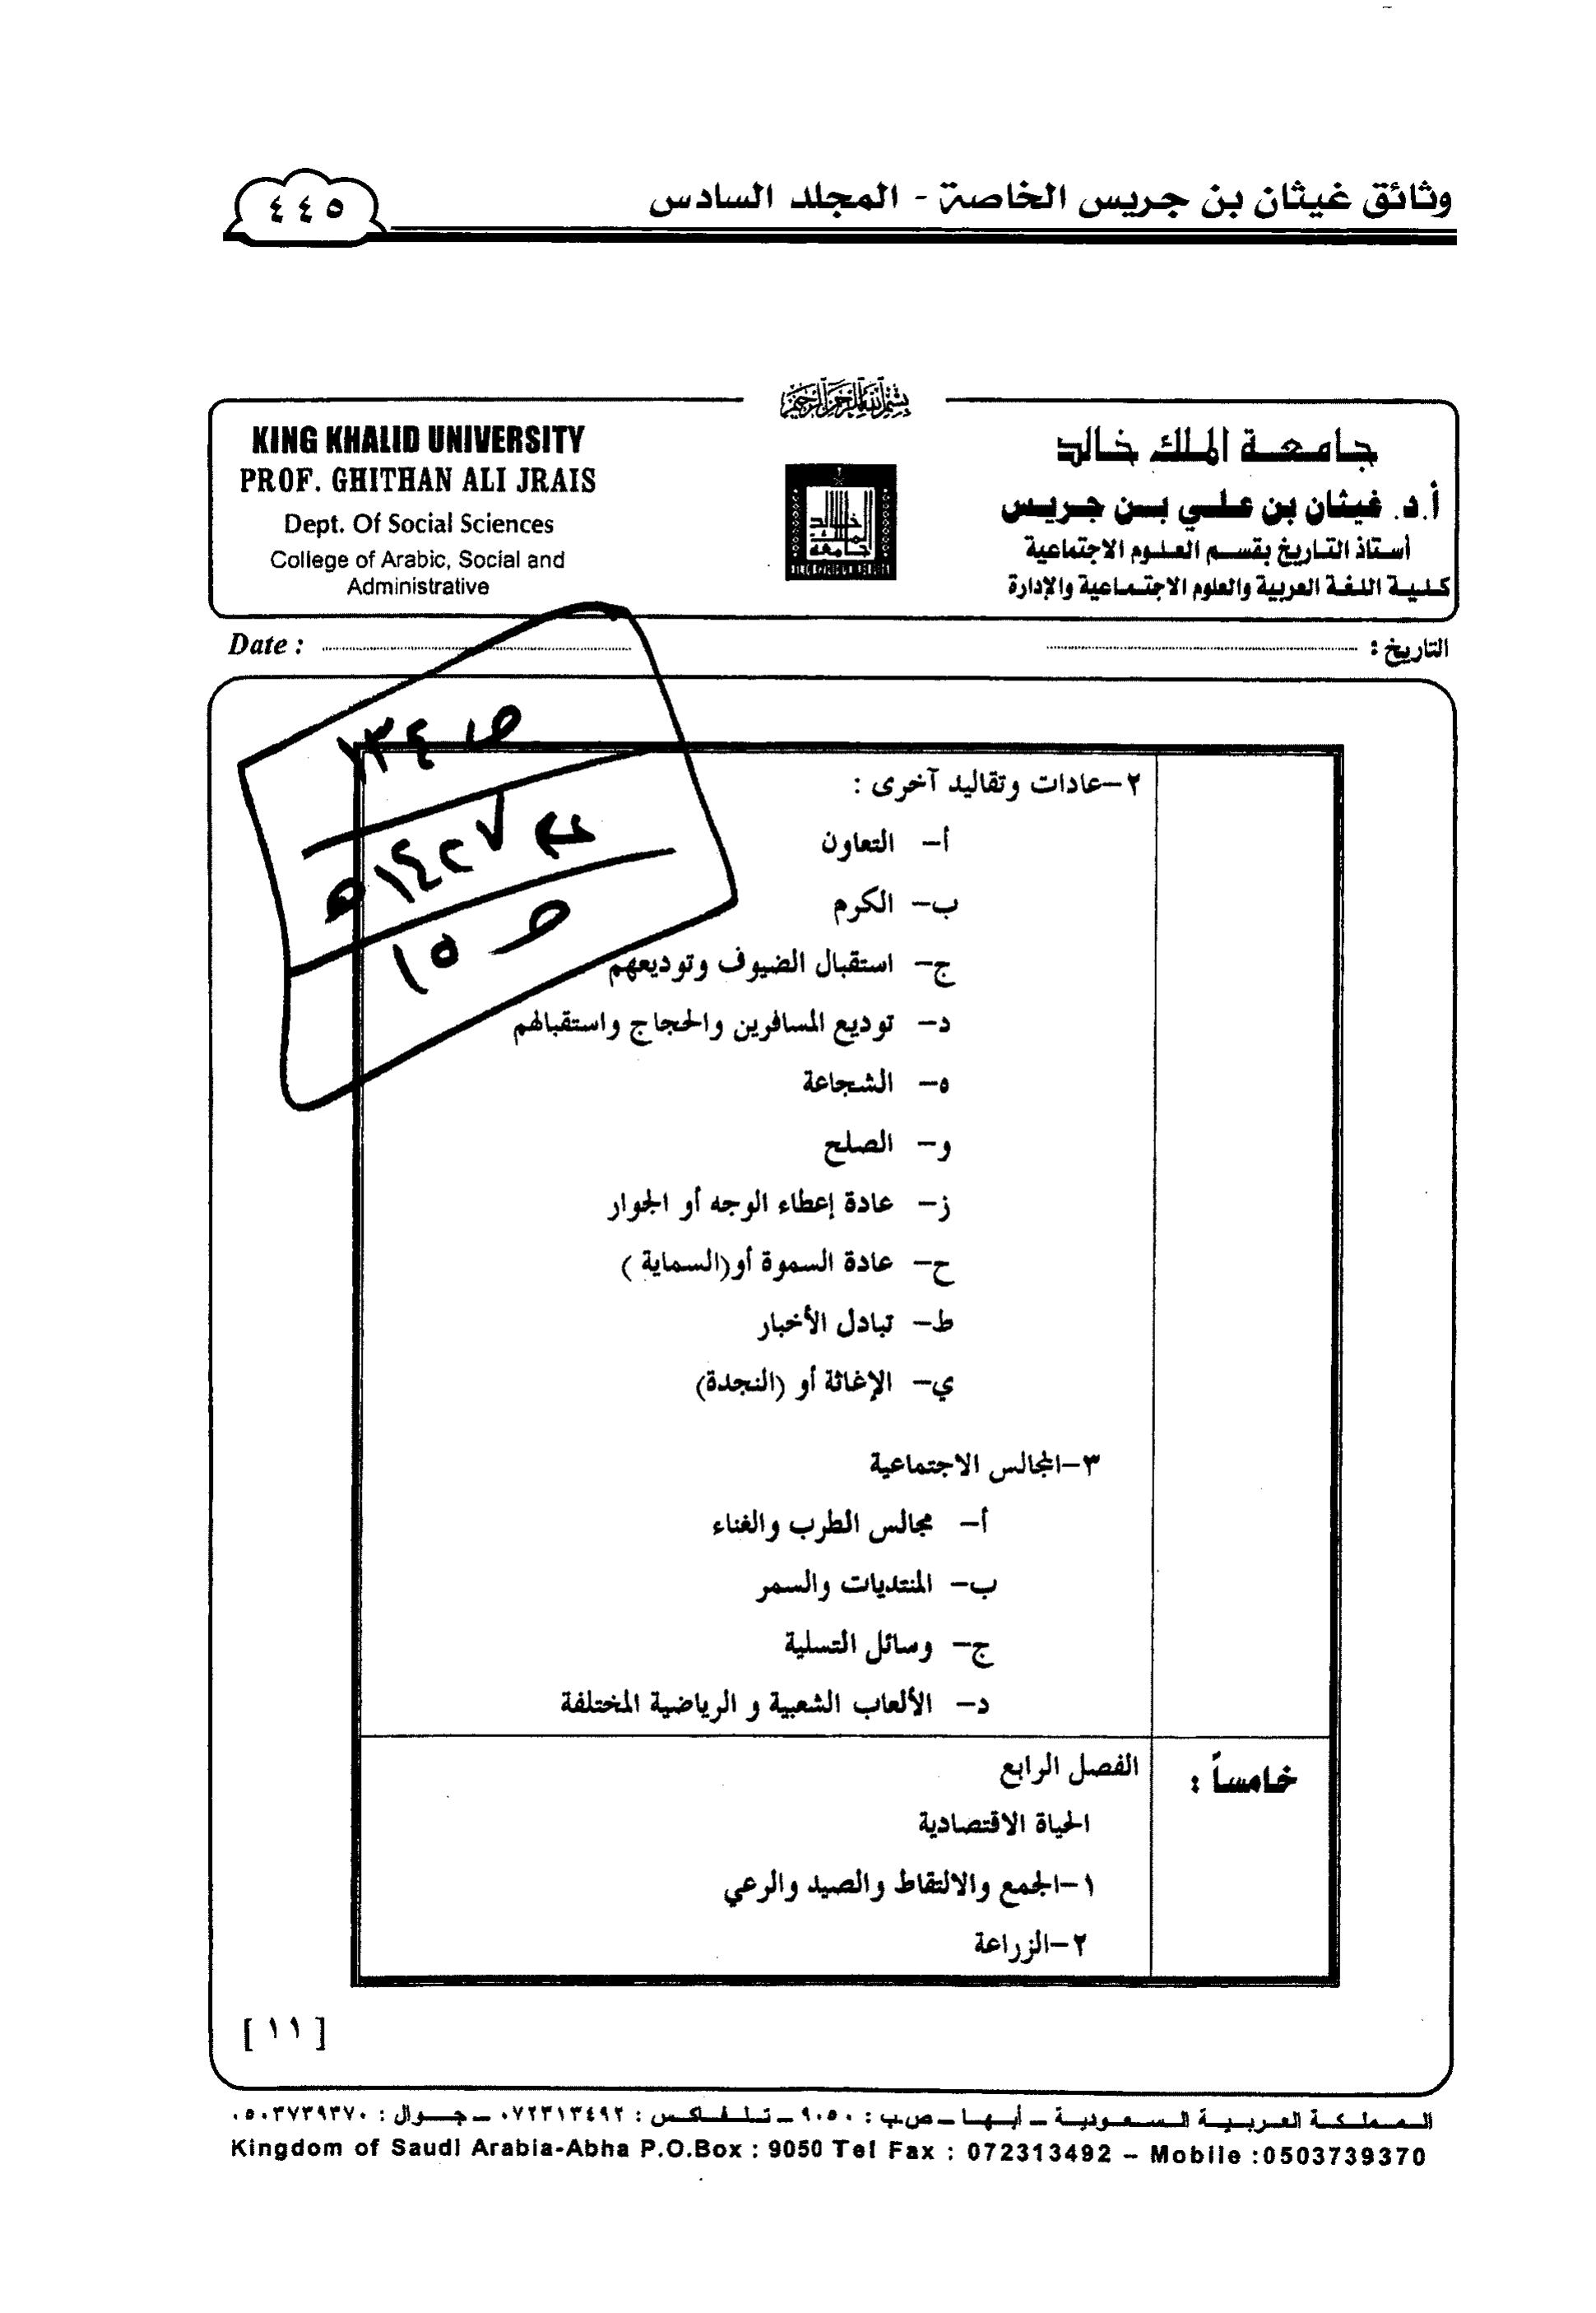 وثائق غيثان بن جريس الخاصة - المجلد السادس
٤٤٥
بسم الله الرحمن الرحيم
جامعة الملك خالد
أ.د. غيثان بن علي بن جريس
أستاذ التاريخ بقسم العلوم الاجتماعية
كلية اللغة العربية والعلوم الاجتماعية والإدارة
KING KHALID UNIVERSITY
PROF. GHITHAN ALI JRAIS
Dept. Of Social Sciences
College of Arabic, Social and
Administrative
التاريخ :
Date :
ص ١٣٤
١٤٢٧هـ
ص ١٥
٢-عادات وتقاليد آخرى :
أ- التعاون
ب- الكرم
ج- استقبال الضيوف وتوديعهم
د- توديع المسافرين والحجاج واستقبالهم
ه- الشجاعة
و- الصلح
ز- عادة إعطاء الوجه أو الجوار
ح- عادة السموة أو(السماية )
ط- تبادل الأخبار
ي- الإغاثة أو (النجدة)
٣-المجالس الاجتماعية
أ- مجالس الطرب والغناء
ب- المنتديات والسمر
ج- وسائل التسلية
د- الألعاب الشعبية و الرياضية المختلفة
خامساً :
الفصل الرابع
الحياة الاقتصادية
١-الجمع والالتقاط والصيد والرعي
٢-الزراعة
[ ١١ ]
المملكة العربية السعودية - أبها - ص.ب : ٩٠٥٠ - تلفاكس : ٠٧٢٣١٣٤٩٢ - جوال : ٠٥٠٣٧٣٩٣٧٠
Kingdom of Saudi Arabia-Abha P.O.Box : 9050 Tel Fax : 072313492 – Mobile :0503739370